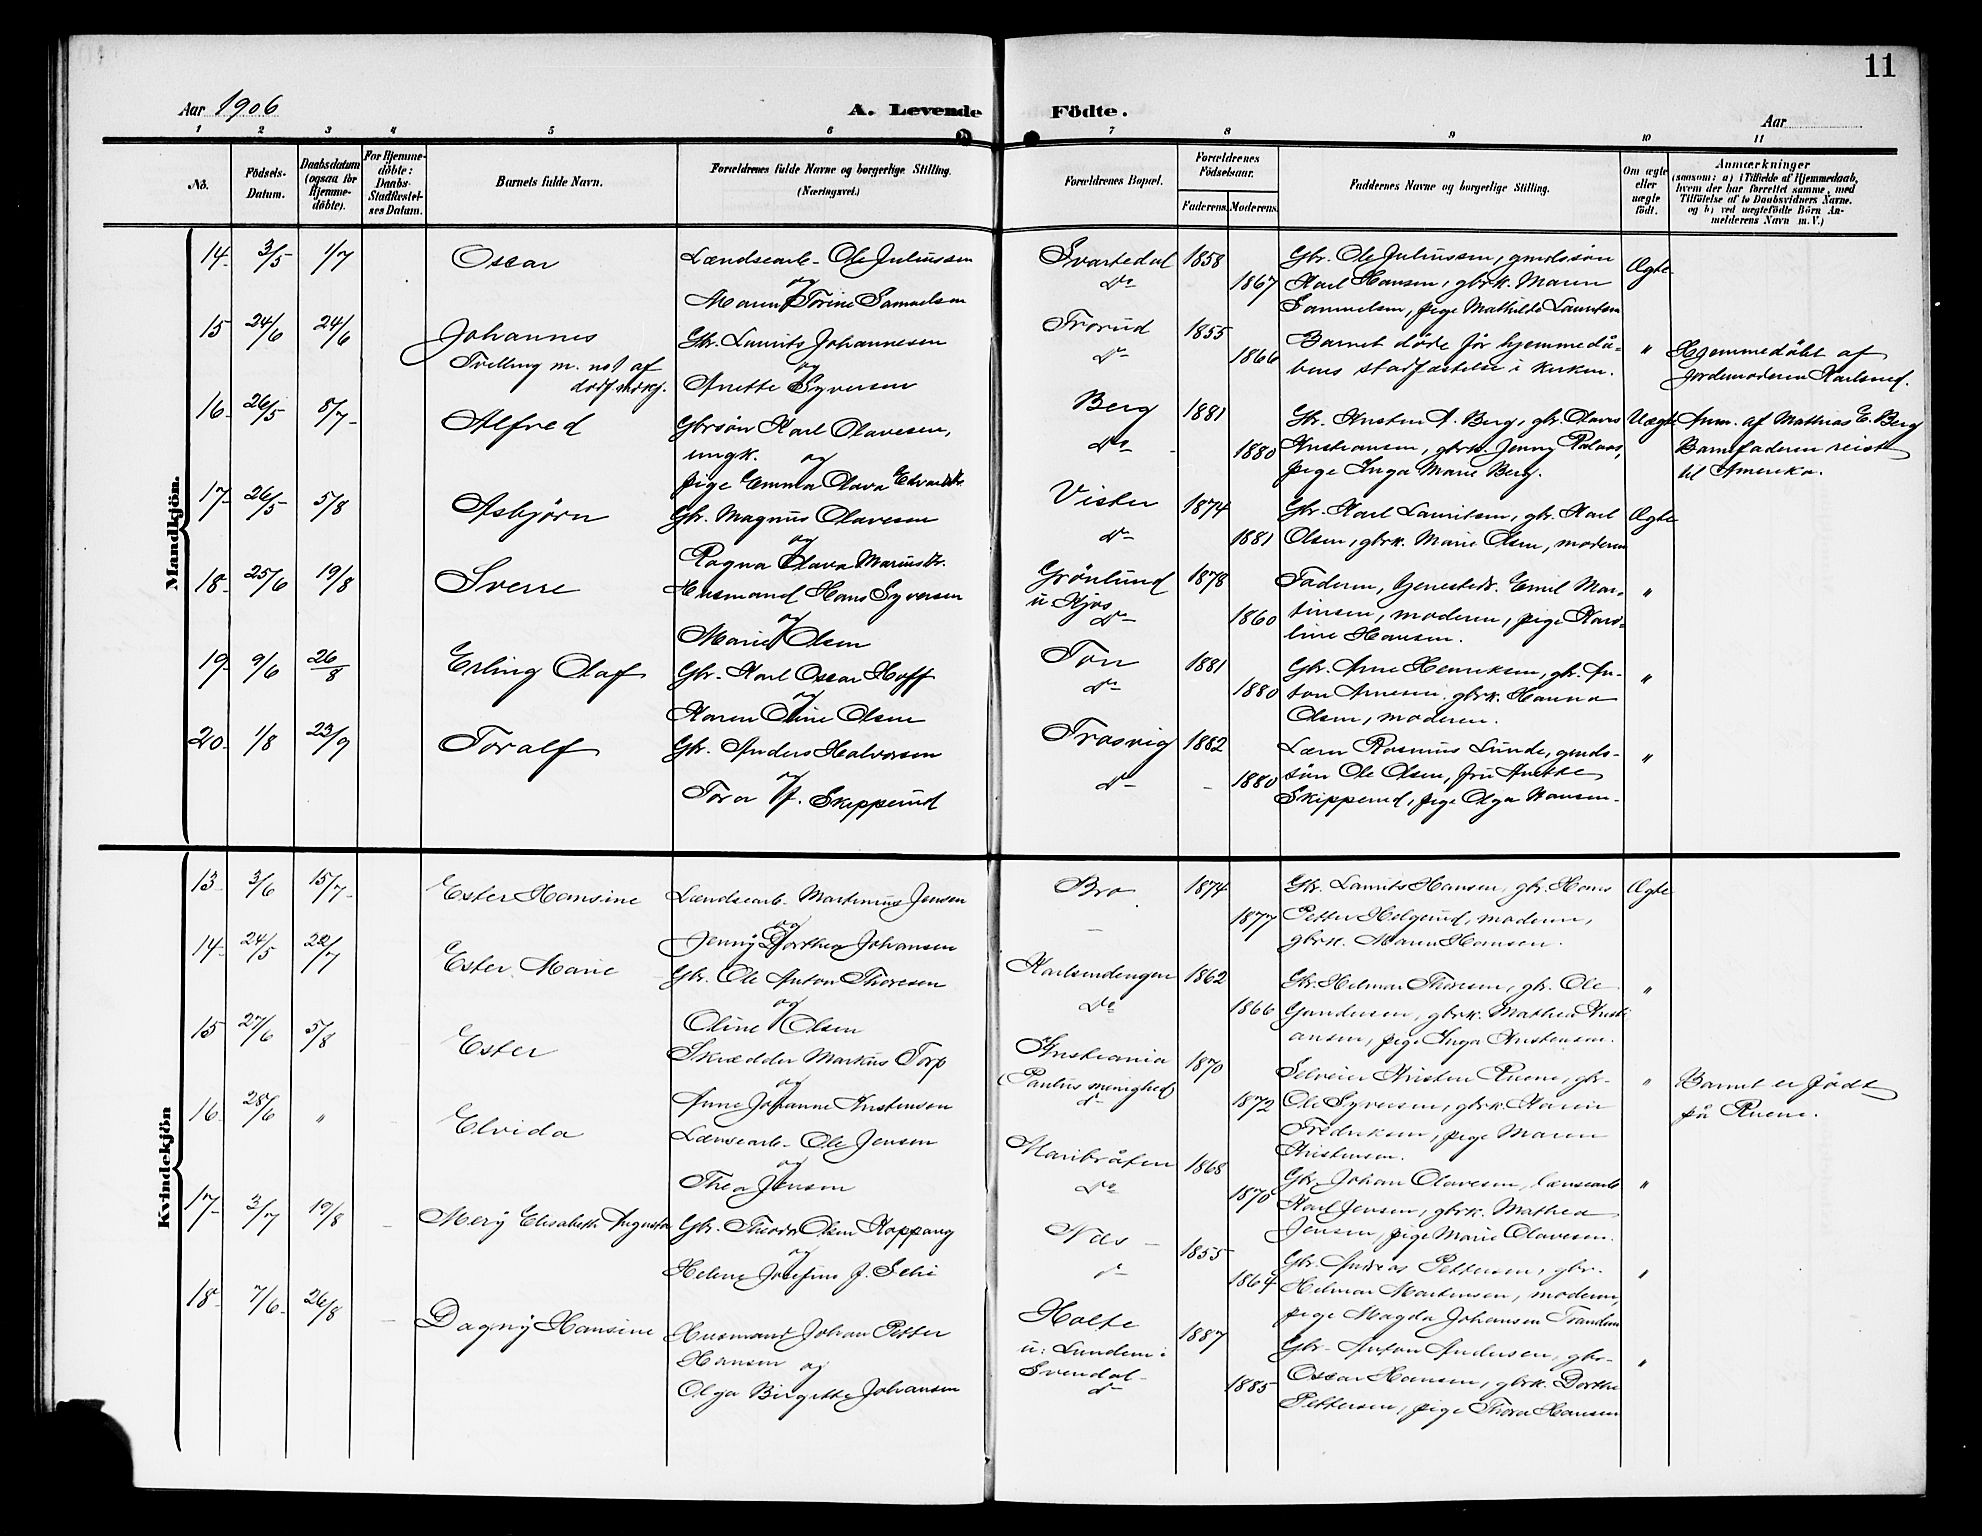 11
Aar 1906
A. Levende
Födte.
Aar
1 2 3 4 5 6 7 8 9 10 11
No.
Födsels-
Datum.
Daabsdatum
(ogsaa for
Hjemme-
döbte).
For Hjemme-
döbte:
Daabs-
Stadfæstel-
ses Datum.
Barnets fulde Navn.
Forældrenes fulde Navne og borgerlige Stilling.
(Næringsvei.)
Forældrenes Bopæl.
Forældrenes
Födselsaar.
Faderens. Moderens.
Faddernes Navne og borgerlige Stilling.
Om ægte
eller
uægte
födt.
Anmærkninger
(saasom: a) i Tilfælde af Hjemmedaab,
hvem der har forrettet samme, med
Tilföielse af to Daabsvidners Navne.
og b) ved uægtefödte Börn An-
melderens Navn m. V.)
Mandkjön.
14. 3/5 1/7
Oscar
Lændsearb. Ole Juliussen
og
Maren Torine Samuelsen
Svartedal
do
1858
1867
Gbr. Ole Juliussen, gmdssön
Karl Hansen, gbrk. Maren
Sammelsen, pige Mathilde Lauritsen
Ægte
15 24/6 24/6
Johannes
Tvilling m. no 1 af
dödf. mdkj.
Gbr. Laurits Johannesen
og
Anette Syversen
Trorud
do
1855
1866
Barnet døde før hjemmedå-
bens stadfæstelse i kirken.
"
Hjemmedöbt af
Jordemoderen Karlsrud.
16. 26/5 8/7
Alfred
Gbrsön Karl Olavesen,
ungk. og
pige Emma Olava Edvardsdr.
Berg
do
1881
1880
Gbr. Kristen A. Berg, gbr. Olaves
Kristiansen, gbrk. Jenny
pige Inga Marie Berg.
Uægte
Anm. af Mathias E. Berg
Barnefaderen reist
til Amerika.
17. 26/5 5/8
Asbjörn
Gbr. Magnus Olavesen
og
Ragna Olava Mariusdr.
Vister
do
1874
1881
Gbr. Karl Lauritsen, gbr. Karl
Olsen, gbrk. Marie Olsen, moderen
Ægte
18. 25/6 19/8
Sverre
Husmand Hans Syversen
og
Marie Olsen
Grönlund
u. Kjos
do
1878
1860
Faderen, tjenestedr. Emil Mar-
tinsen, moderen, pige Karo-
line Hansen.
"
19. 9/6 26/8
Erling Olaf
Gbr. Karl Oscar Hoff
og
Karen Oline Olsen
Ton
do
1881
1880
Gbr. Arne Henriksen, gbr. An-
ton Arnesen, gbrk. Hanna
Olsen, moderen.
"
20. 1/8 23/9
Toralf
Gbr. Anders Halvorsen
og
Tora f. Skipperud
Trosvig
do
1882
1880
Lærer Rasmus Lunde, gmds-
sön Ole Olsen, fru Anette
Skipperud, pige Olga Hansen.
"
Kvindekjön
13. 3/6 15/7
Ester Hansine
Lændsearb. Martinius Jensen
og
Jenny Dorthea Johansen
Bro
1874
1877
Gbr. Laurits Hansen, gbr. Hans
Petter Helgerud, moderen,
gbrk. Maren Hansen.
Ægte
14. 24/5 22/7
Ester Marie
Gbr. Ole Anton Thoresen
og
Oline Olsen
Karlsendengen
do
1862
1866
Gbr. Hilmar Thoresen, gbr. Ole
Gundersen, gbrk. Mathea Kristi-
ansen, pige Inga Kristensen.
"
15 27/6 5/8
Ester
Skrædder Markus Torp
og
Anne Johanne Kristensen
Kristiania
(Paulus menighed
do
1870
1872
Selveier Kristen Ruene, gbr.
Ole Syversen, gbrk. Karen
Fredriksen, pige Maren
Kristensen.
"
Barnet er födt
på Ruene.
16. 28/6 "
Elvida
Lænsearb. Ole Jensen
og
Thea Jensen
Maribråten
do
1868
1870
Gbr. Johan Olavesen, lænsearb.
Karl Jensen, gbrk. Mathea
Jensen, pige Marie Olavesen.
"
17. 3/7 19/8
Mery Elisabeth Augusta
Gbr. Theodor Olsen Koppang
og
Helene Josefine f. Selie
Næs
do
1855
1864
Gbr. Andreas Pettersen, gbr.
Hilmar Martinsen, moderen,
pige Magda Johansen Trandem
"
18. 7/6. 26/8
Dagny Hansine
Husmand Johan Petter
Hansen og
Olga Birgitte Johansen
Holte
u: Lunden i
Svendal.
do
1887
1885
Gbr. Anton Andersen, gbr.
Oscar Hansen, gbrk. Dorthe
Pettersen, pige Thora Hansen
"